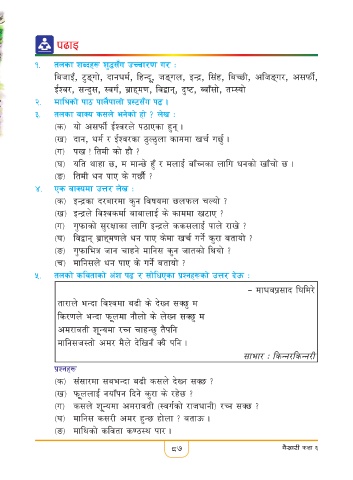 पढाइ
१. तलका शब्दहरू शुद्धसँग उच्चारण गर :
बिजाइँ, टुङ्गो, दानधर्म, हिन्दू, जङ्गल, इन्द्र, सिंह, बिच्छी, अजिङ्गर, असर्फी,
ईश्वर, सन्दुस, स्वर्ग, ब्राह्मण, विद्वान्, दुष्ट, ख्वाँसो, तम्स्यो
२. माथिको पाठ पालैपालो प्रस्टसँग पढ ।
३. तलका वाक्य कसले भनेको हो ? लेख :
(क) यो असर्फी ईश्वरले पठाएका हुन् ।
(ख) दान, धर्म र ईश्वरका ठुल्ठुला काममा खर्च गर्छु ।
(ग) पख ! तिमी को हौ ?
(घ) यति थाहा छ, म मान्छे हुँ र मलाई बाँच्नका लागि धनको खाँचो छ ।
(ङ) तिमी धन पाए के गर्छौ ?
४. एक वाक्यमा उत्तर लेख :
(क) इन्द्रका दरबारमा कुन विषयमा छलफल चल्यो ?
(ख) इन्द्रले विश्वकर्मा बाबालाई के काममा खटाए ?
(ग) गुफाको सुरक्षाका लागि इन्द्रले ककसलाई पाले राखे ?
(घ) विद्वान् ब्राह्मणले धन पाए केमा खर्च गर्ने कुरा बतायो ?
(ङ) गुफाभित्र जान चाहने मानिस कुन जातको थियो ?
(च) मानिसले धन पाए के गर्ने बतायो ?
५. तलको कविताको अंश पढ र सोधिएका प्रश्नहरूको उत्तर देऊ :
– माधवप्रसाद घिमिरे
ताराले भन्दा विश्वमा बढी के देख्न सक्छु म
किरणले भन्दा फूलमा नौलो के लेख्न सक्छु म
अमरावती शून्यमा रच्न चाहन्छु तैपनि
मानिसजस्तो अमर मैले देखिनँ क्यै पनि ।
साभार : किन्नरकिन्नरी
प्रश्नहरू
(क) संसारमा सबभन्दा बढी कसले देख्न सक्छ ?
(ख) फूललाई नयाँपन दिने कुरा के रहेछ ?
(ग) कसले शून्यमा अमरावती (स्वर्गको राजधानी) रच्न सक्छ ?
(घ) मानिस कसरी अमर हुन्छ होला ? बताऊ ।
(ङ) माथिको कविता कण्ठस्थ पार ।
९७
कक्षा ६